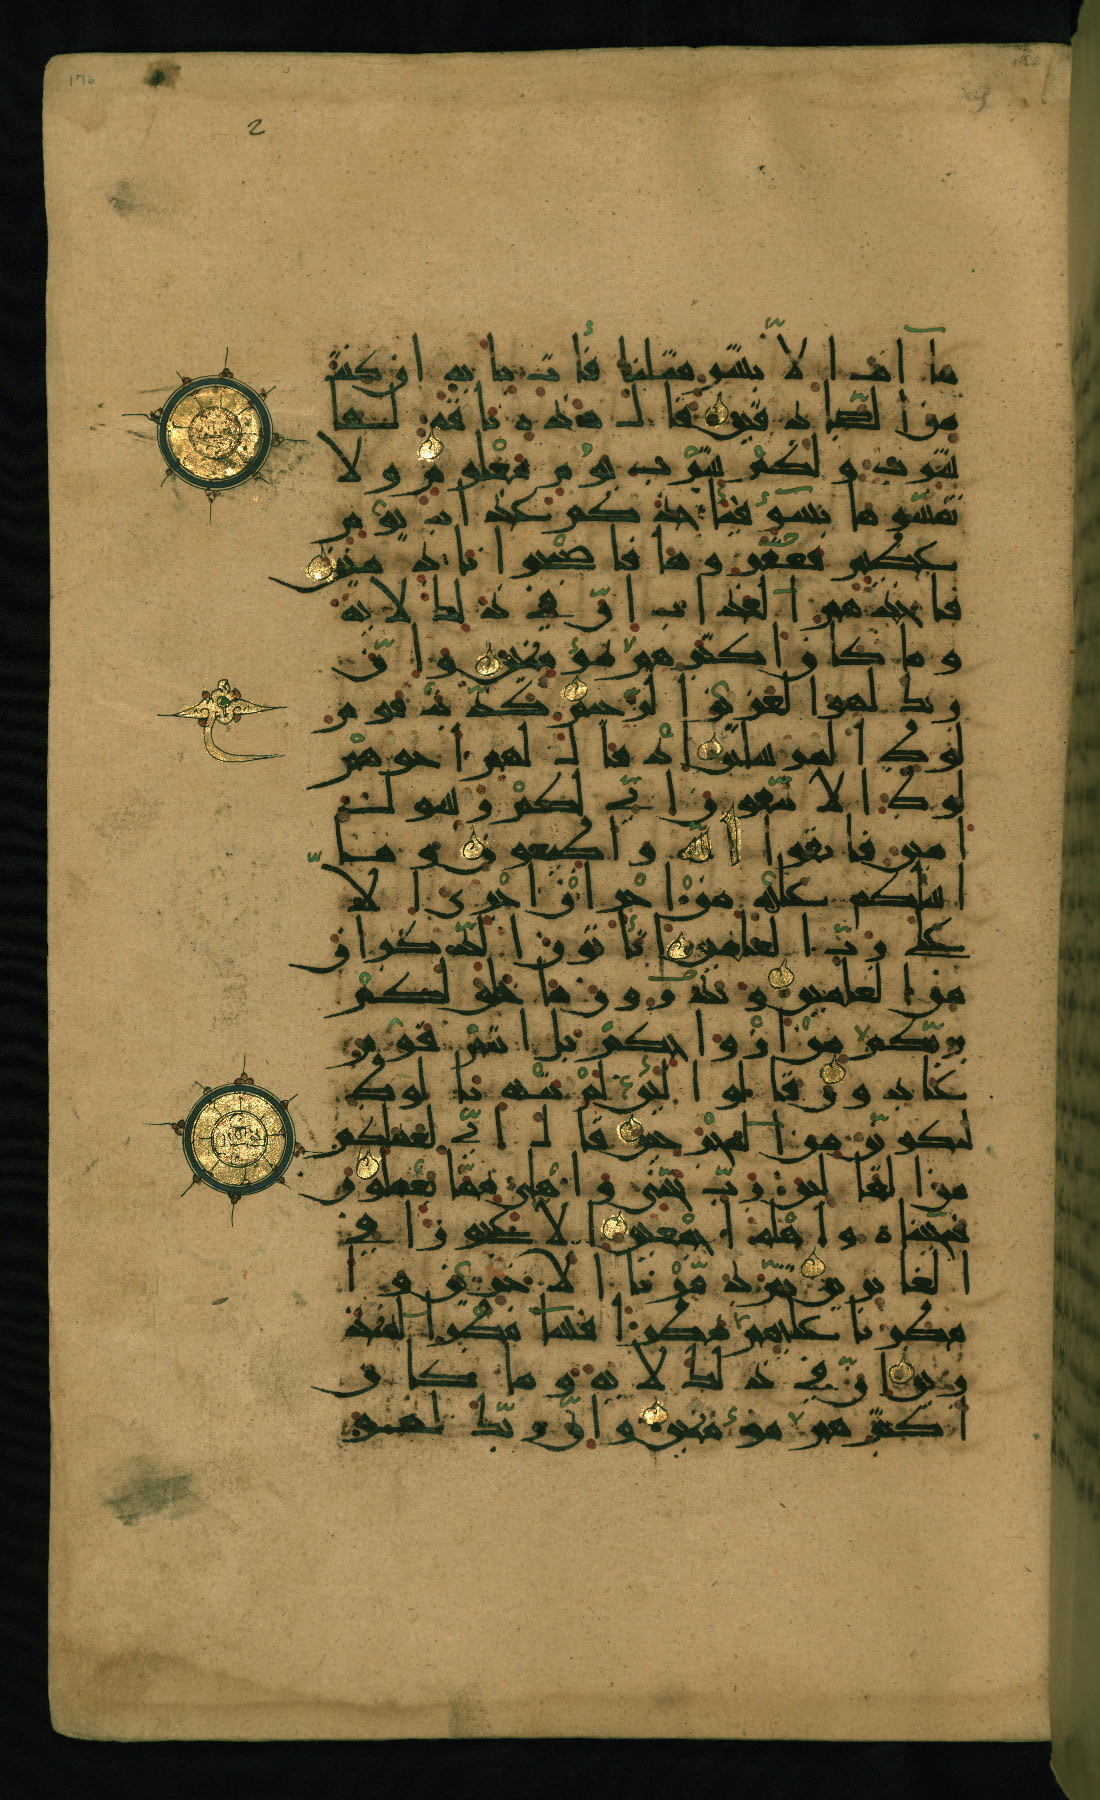 176
2
ما انت الا بشر مثلنا فأت باية ان كنت
من الصادقين قال هذه ناقة لها
شرب ولكم شرب يوم معلوم ولا
تمسوها بسوء فيأخذكم عذاب يوم
عظيم فعقروها فاصبحوا نادمين
فاخذهم العذاب ان في ذلك لاية
وما كان اكثرهم مؤمنين وان
ربك لهو العزيز الرحيم كذبت قوم
لوط المرسلين اذ قال لهم اخوهم
لوط الا تتقون اني لكم رسول
امين فاتقوا الله واطيعون وما
اسألكم عليه من اجر ان اجري الا
على رب العالمين أتأتون الذكران
من العالمين وتذرون ما خلق لكم
ربكم من ازواجكم بل انتم قوم
عادون قالوا لئن لم تنته يا لوط
لتكونن من المخرجين قال اني لعملكم
من القالين رب نجني واهلي مما يعملون
فنجيناه واهله اجمعين الا عجوزا في
الغابرين ثم دمرنا الاخرين وا
مطرنا عليهم مطرا فساء مطر المنذ
رين ان في ذلك لاية وما كان
اكثرهم مؤمنين وان ربك لهو